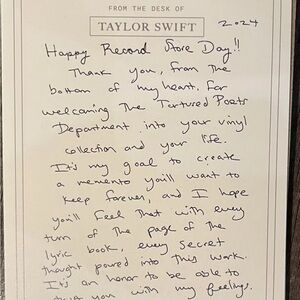 FROM THE DESK OF
TAYLOR SWIFT
2024
Happy Record Store Day!!
Thank you, from the
bottom of my heart, for
welcoming The Tortured Poets
Department into your vinyl
collection and your life.
It's my goal to create
a memento you'll want to
keep forever, and I hope
you'll feel that with every
turn of the page of the
lyric book, every secret
thought poured into this work.
It's an honor to be able to
trust you with my feelings.